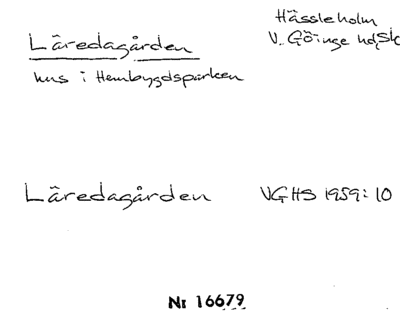 Läredagården
Hässleholm
V. Göinge hd, Sk
hus i Hembygdsparken
Läredagården VGHS 1959: 10
Nr 16679